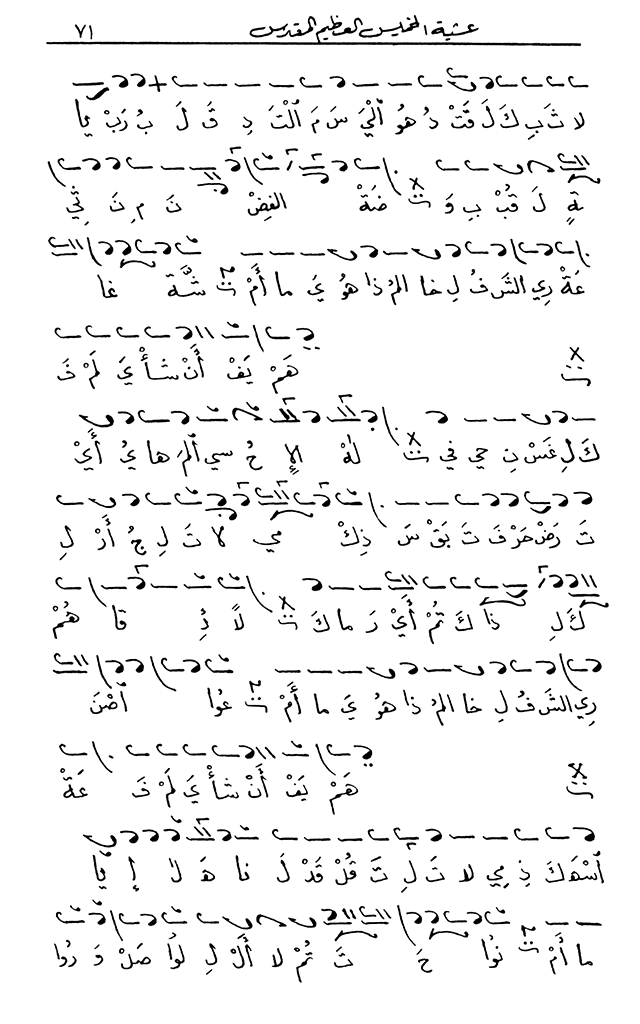 عشية الخميس العظيم المقدس ٧١
لا ثَ بِ كَ لَ قَتْ دُ هُو اَلْيَ سَ مَ الْتَ دِ قَ لَ بُ رَبْ يا
ةٍ لَ قُبْ بِ وَ ت ضَةْ الفِضْ نَ مِ نَ ثي
عَةْ رِي الشَرَ فُ لِ خا المُ ذا هُو يَ ما أَمْ ت شَّةَ غا
ت هَمْ يَفْ أَنْ شأْ يَ لَمْ فَ
كَ لِ غَسْ نِ حي في ت لَهْ الإِ حُ سي اَلمَ ها يُ أَيْ
تَ رَضْ حَرْ فَ تَ بَقْ سَ ذِكْ مي لا تَ لِ جُ أَرْ لِ
كَ لِ ذا كَ تُمْ أَيْ رَ ما كَ ت لاً ئِ قا هُمْ
رِي الشَرَ فُ لِ خا المُ ذا هُو يَ ما أَمْ ت عُوا اَصْنَ
ت هَمْ يَفْ أَنْ شأْ يَ لَمْ فَ عَةْ
اَسْهَ كَ ذِ مي لا تَ لِ تَ قُلْ قَدْ لَ نا هَ لا إِ يا
ما أَمْ ت نُوا حَ تَ تُمْ لا أَلْ لِ لوا صَلْ وَ رُوا